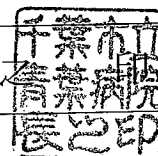 千葉市立
青葉病院
長之印